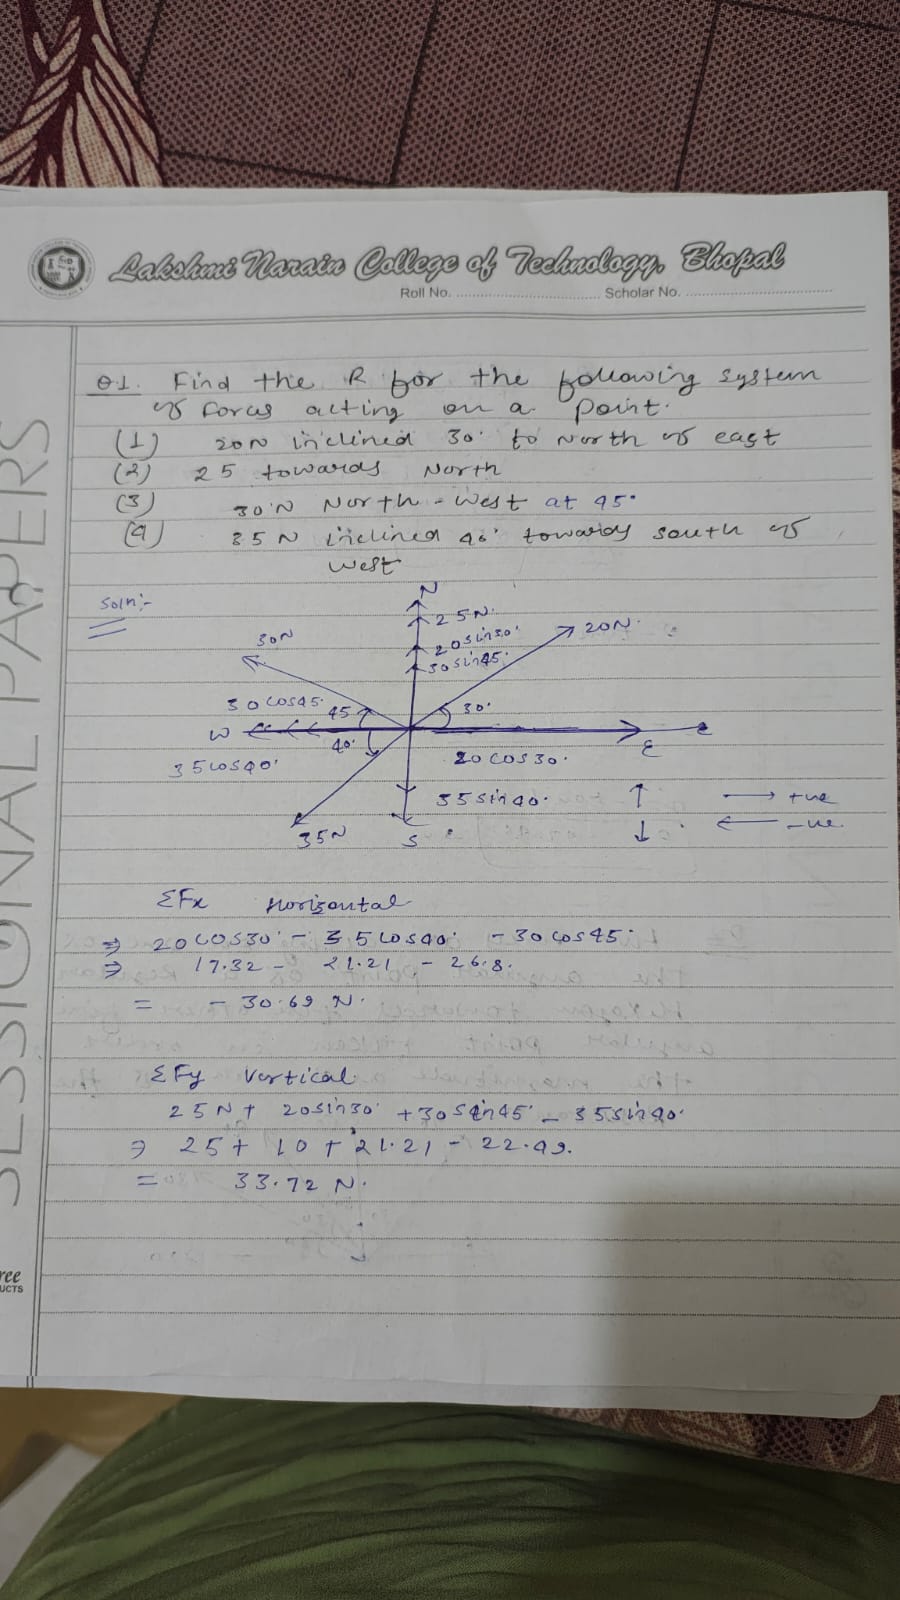 Lakshmi Narain College of Technology, Bhopal
Roll No. Scholar No.
SESSIONAL PAPERS
Q.1. Find the R for the following system
of forces acting on a point.
(1) 20N inclined 30° to North of east
(2) 25 towards North
(3) 30N North-West at 45°
(4) 35N inclined 40° towards south of
west
Soln:-
N
25N.
20sin30°
30sin45°
20N.
30N
30cos45°
45
30°
W
40°
E
35cos40°
20cos30°
35sin40°
35N
S
+ve
-ve
ΣFx Horizontal
⇒ 20cos30° - 35cos40° - 30cos45°
⇒ 17.32 - 21.21 - 26.8.
= - 30.69 N.
ΣFy Vertical
25N + 20sin30° + 30sin45° - 35sin40°
⇒ 25 + 10 + 21.21 - 22.49.
= 33.72 N.
ree
UCTS